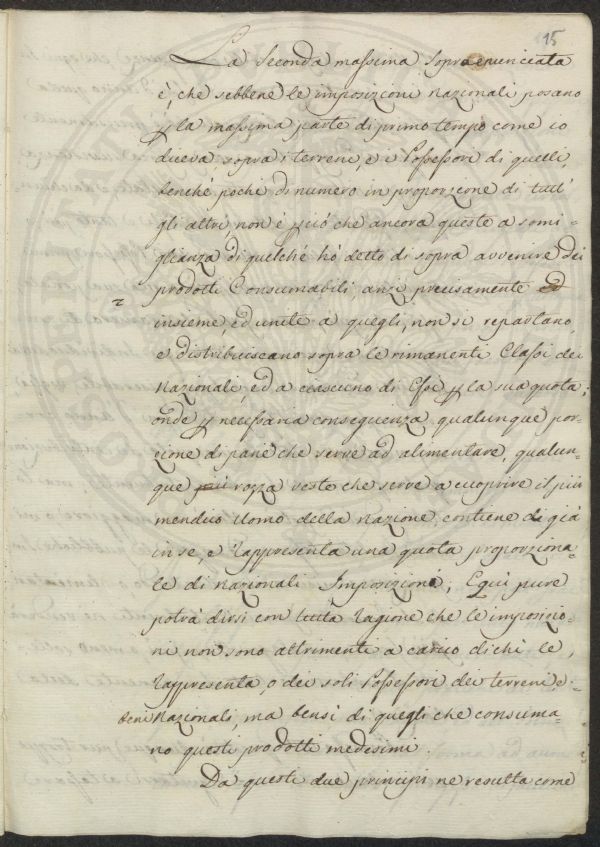 15
La Seconda massima sopraenunciata
é, che sebbene le imposizioni Nazionali posano
p la massima parte di primo tempo come io
diceva sopra i terreni, e i Possessori di quelli,
benché pochi di numero in proporzione di tutt'
gli altri, non é p ció che ancora queste a somi-
glianza di quelché hó detto di sopra avvenire dei
prodotti Consumabili, anzi precisamente ed
insieme ed unite a quegli, non si repartano,
e distribuiscano sopra le rimanenti Classi dei
Nazionali, ed a ciascuno di Essi p la sua quota;
onde p necessaria conseguenza qualunque por-
zione di pane che serve ad alimentare, qualun-
que piú rozza veste che serve a cuoprire il piú
mendico Uomo della Nazione, contiene di giá
in se, e rappresenta una quota proporziona-
le di Nazionali Imposizioni; E quí pure
potrá dirsi con tutta ragione che le imposizio-
ni non sono altrimenti a carico di chi le
rappresenta, o dei soli Possessori dei terreni, e
beni Nazionali, ma bensí di quegli che consuma-
no questi prodotti medesimi.
Da questi due principi ne resulta come